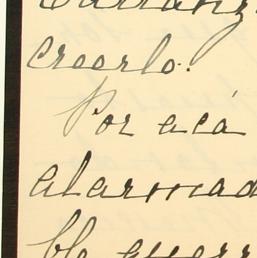 creerlo.
Por acá
alarmad
ble guerr